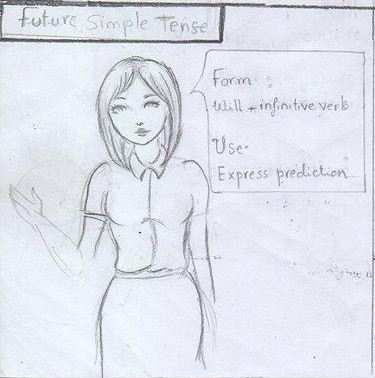 Future Simple Tense
Form :
Will + infinitive verb
Use.
Express prediction